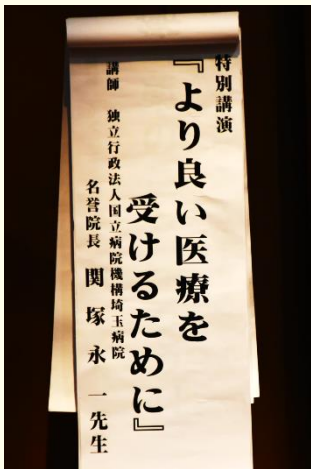 特別講演
『より良い医療を
受けるために』
講師 独立行政法人国立病院機構埼玉病院
名誉院長 関塚永一先生